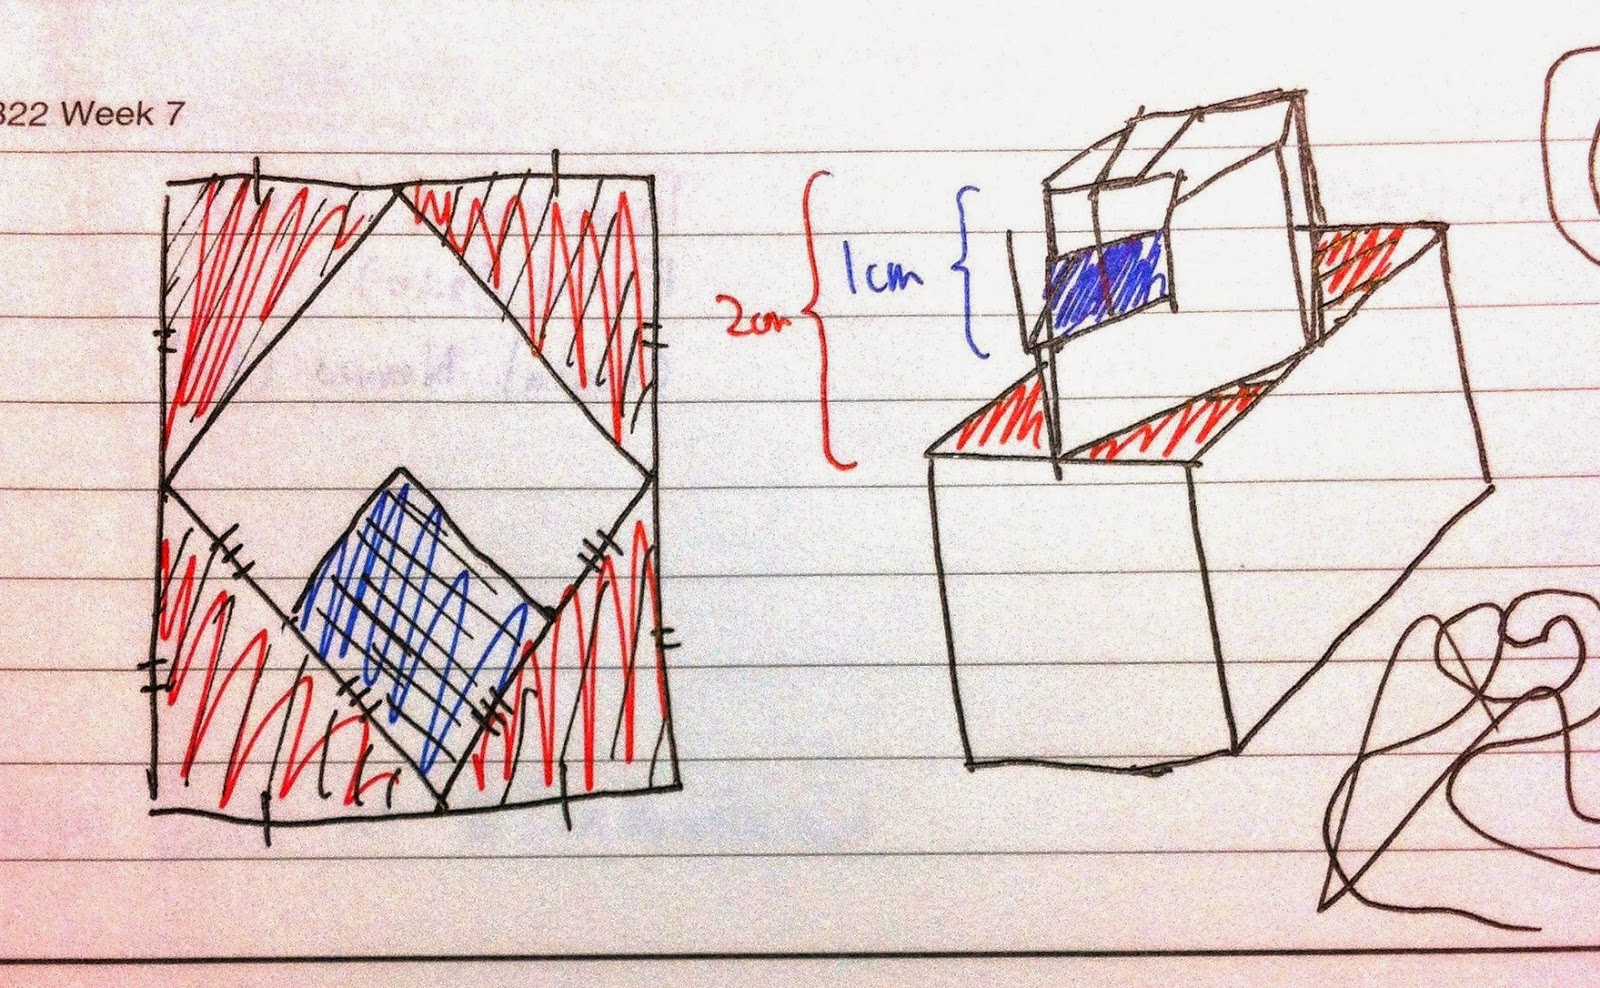 322 Week 7
2cm
1cm